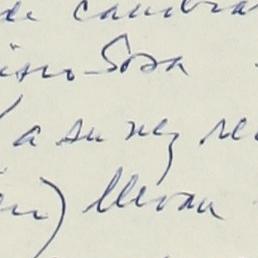 de cambia
Sosa
a su vez re
) llevan